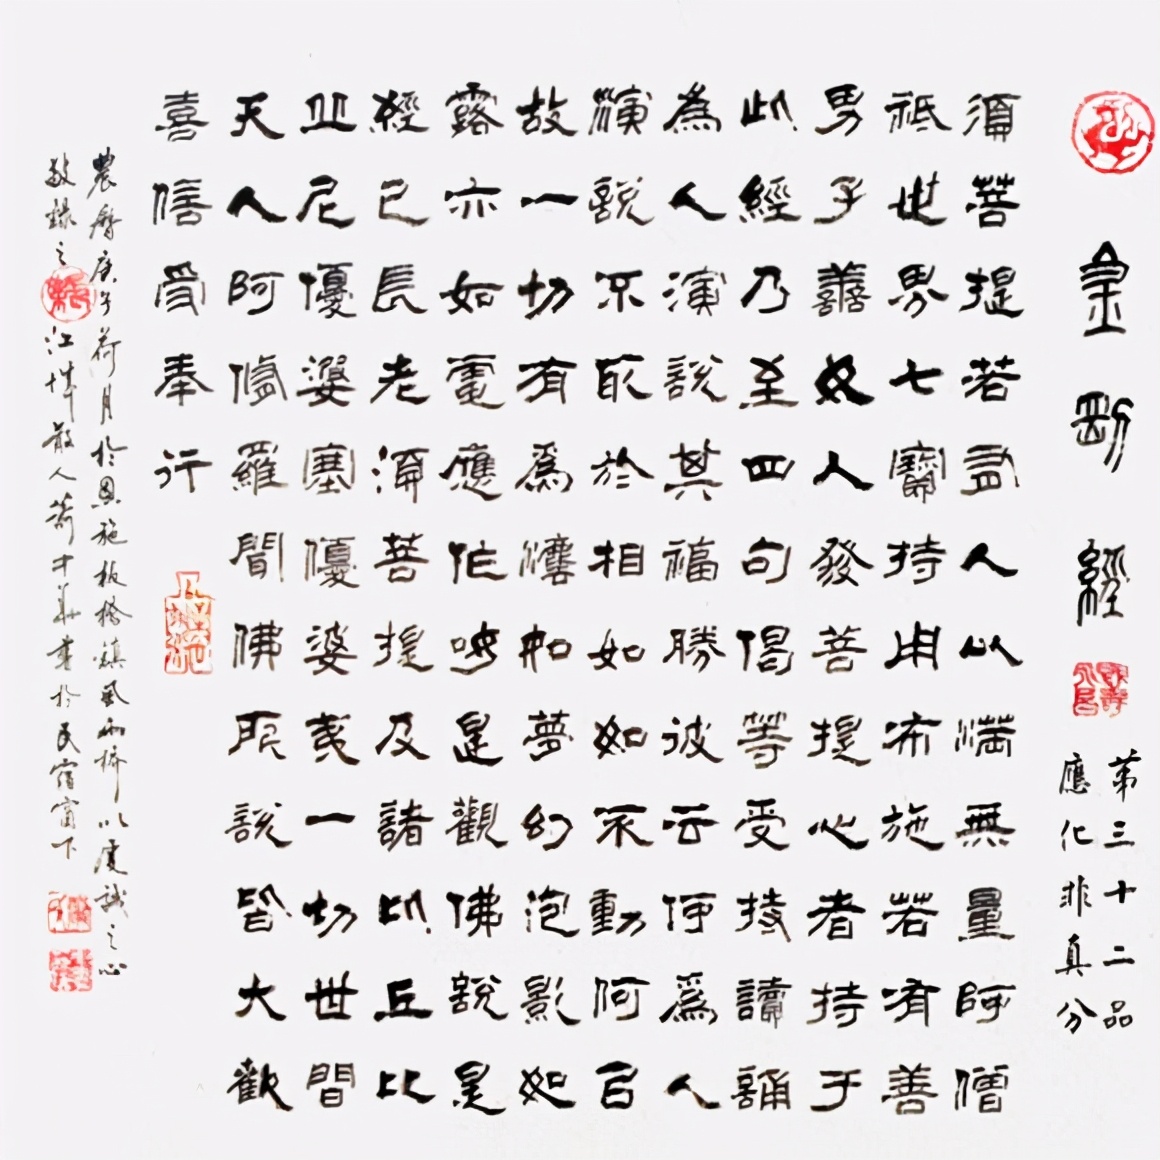 金剛經
第三十二品
應化非真分
須菩提若有人以滿無量阿僧
祇世界七寶持用布施若有善
男子善女人發菩提心者持于
此經乃至四句偈等受持讀誦
為人演說其福勝彼云何為人
演說不取於相如如不動何以
故一切有為法如夢幻泡影如
露亦如電應作如是觀佛說是
經已長老須菩提及諸比丘比
丘尼優婆塞優婆夷一切世間
天人阿修羅聞佛所說皆大歡
喜信受奉行
農曆庚子荷月於恩施板橋鎮風雨橋以虔誠之心
敬錄之江城散人才華書於民宿窗下